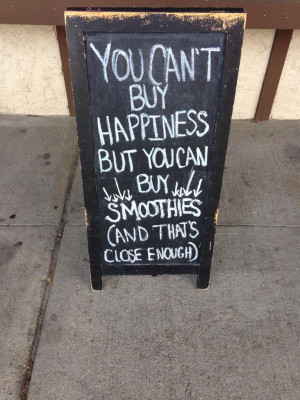 YOU CAN'T
BUY
HAPPINESS
BUT YOU CAN
BUY
SMOOTHIES
(AND THAT'S
CLOSE ENOUGH)